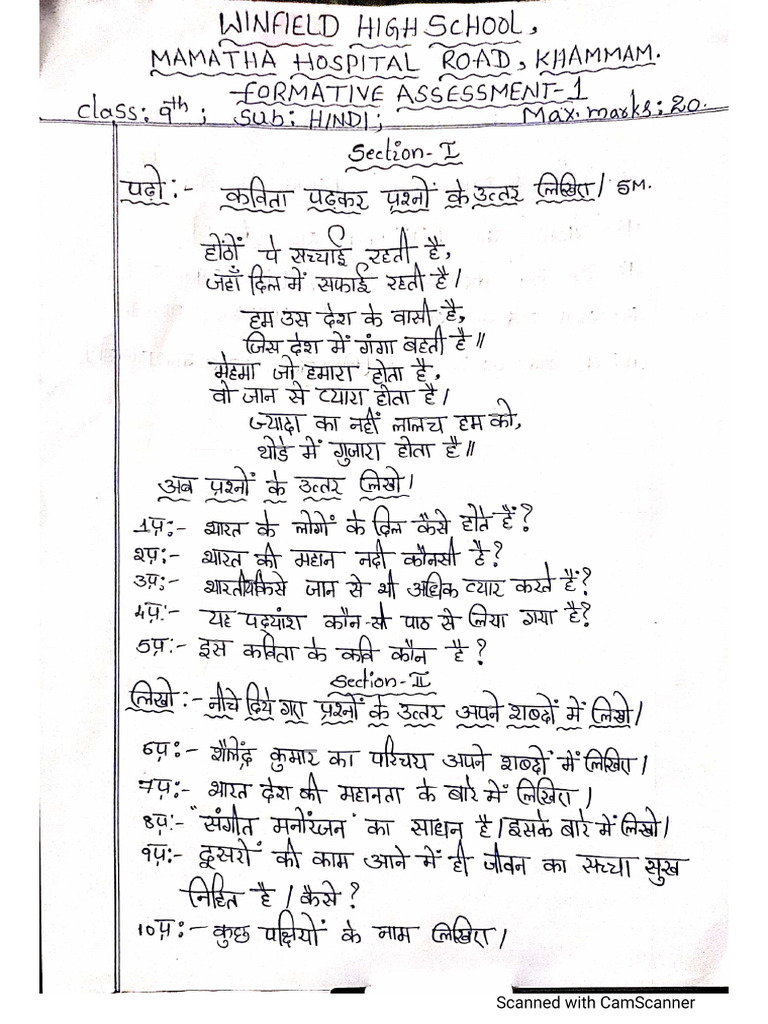 WINFIELD HIGH SCHOOL,
MAMATHA HOSPITAL ROAD, KHAMMAM.
FORMATIVE ASSESSMENT-1
Class: 9th; Sub: HINDI; Max. marks: 20.
Section-I
पढ़ो:- कविता पढ़कर प्रश्नों के उत्तर लिखिए। 5M.
होंठों पे सच्चाई रहती है,
जहाँ दिल में सफाई रहती है।
हम उस देश के वासी है,
जिस देश में गंगा बहती है॥
मेहमा जो हमारा होता है,
वो जान से प्यारा होता है।
ज्यादा का नहीं लालच हम को,
थोडे में गुजारा होता है॥
अब प्रश्नों के उत्तर लिखो।
1प्र:- भारत के लोगों के दिल कैसे होते हैं?
2प्र:- भारत की महान नदी कौनसी है?
3प्र:- भारतीय किसे जान से भी अधिक प्यार करते हैं?
4प्र:- यह पद्यांश कौन-सी पाठ से लिया गया है?
5प्र:- इस कविता के कवि कौन है?
Section-II
लिखो:- नीचे दिये गए प्रश्नों के उत्तर अपने शब्दों में लिखो।
6प्र:- शैलेंद्र कुमार का परिचय अपने शब्दों में लिखिए।
7प्र:- भारत देश की महानता के बारे में लिखिए।
8प्र:- "संगीत मनोरंजन" का साधन है। इसके बारे में लिखो।
9प्र:- दूसरों की काम आने में ही जीवन का सच्चा सुख
निहित है। कैसे?
10प्र:- कुछ पक्षियों के नाम लिखिए।
Scanned with CamScanner